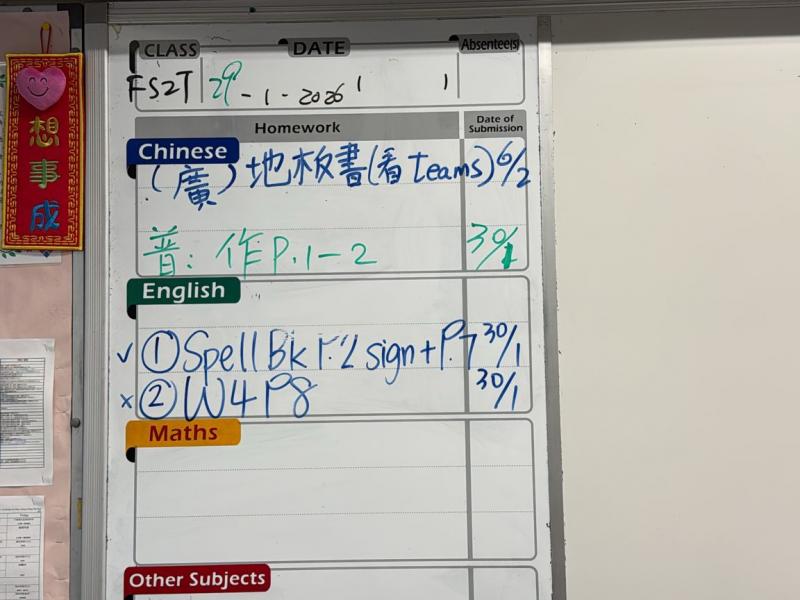 CLASS DATE Absentee(s)
FS2T 29 - 1 - 2026
Homework Date of Submission
Chinese
(廣) 地板書(看 teams) 6/2
普: 作P.1-2 30/1
English
✓ ① Spell Bk P.2 sign + P.7 30/1
× ② W4 P8 30/1
Maths
Other Subjects
想
事
成